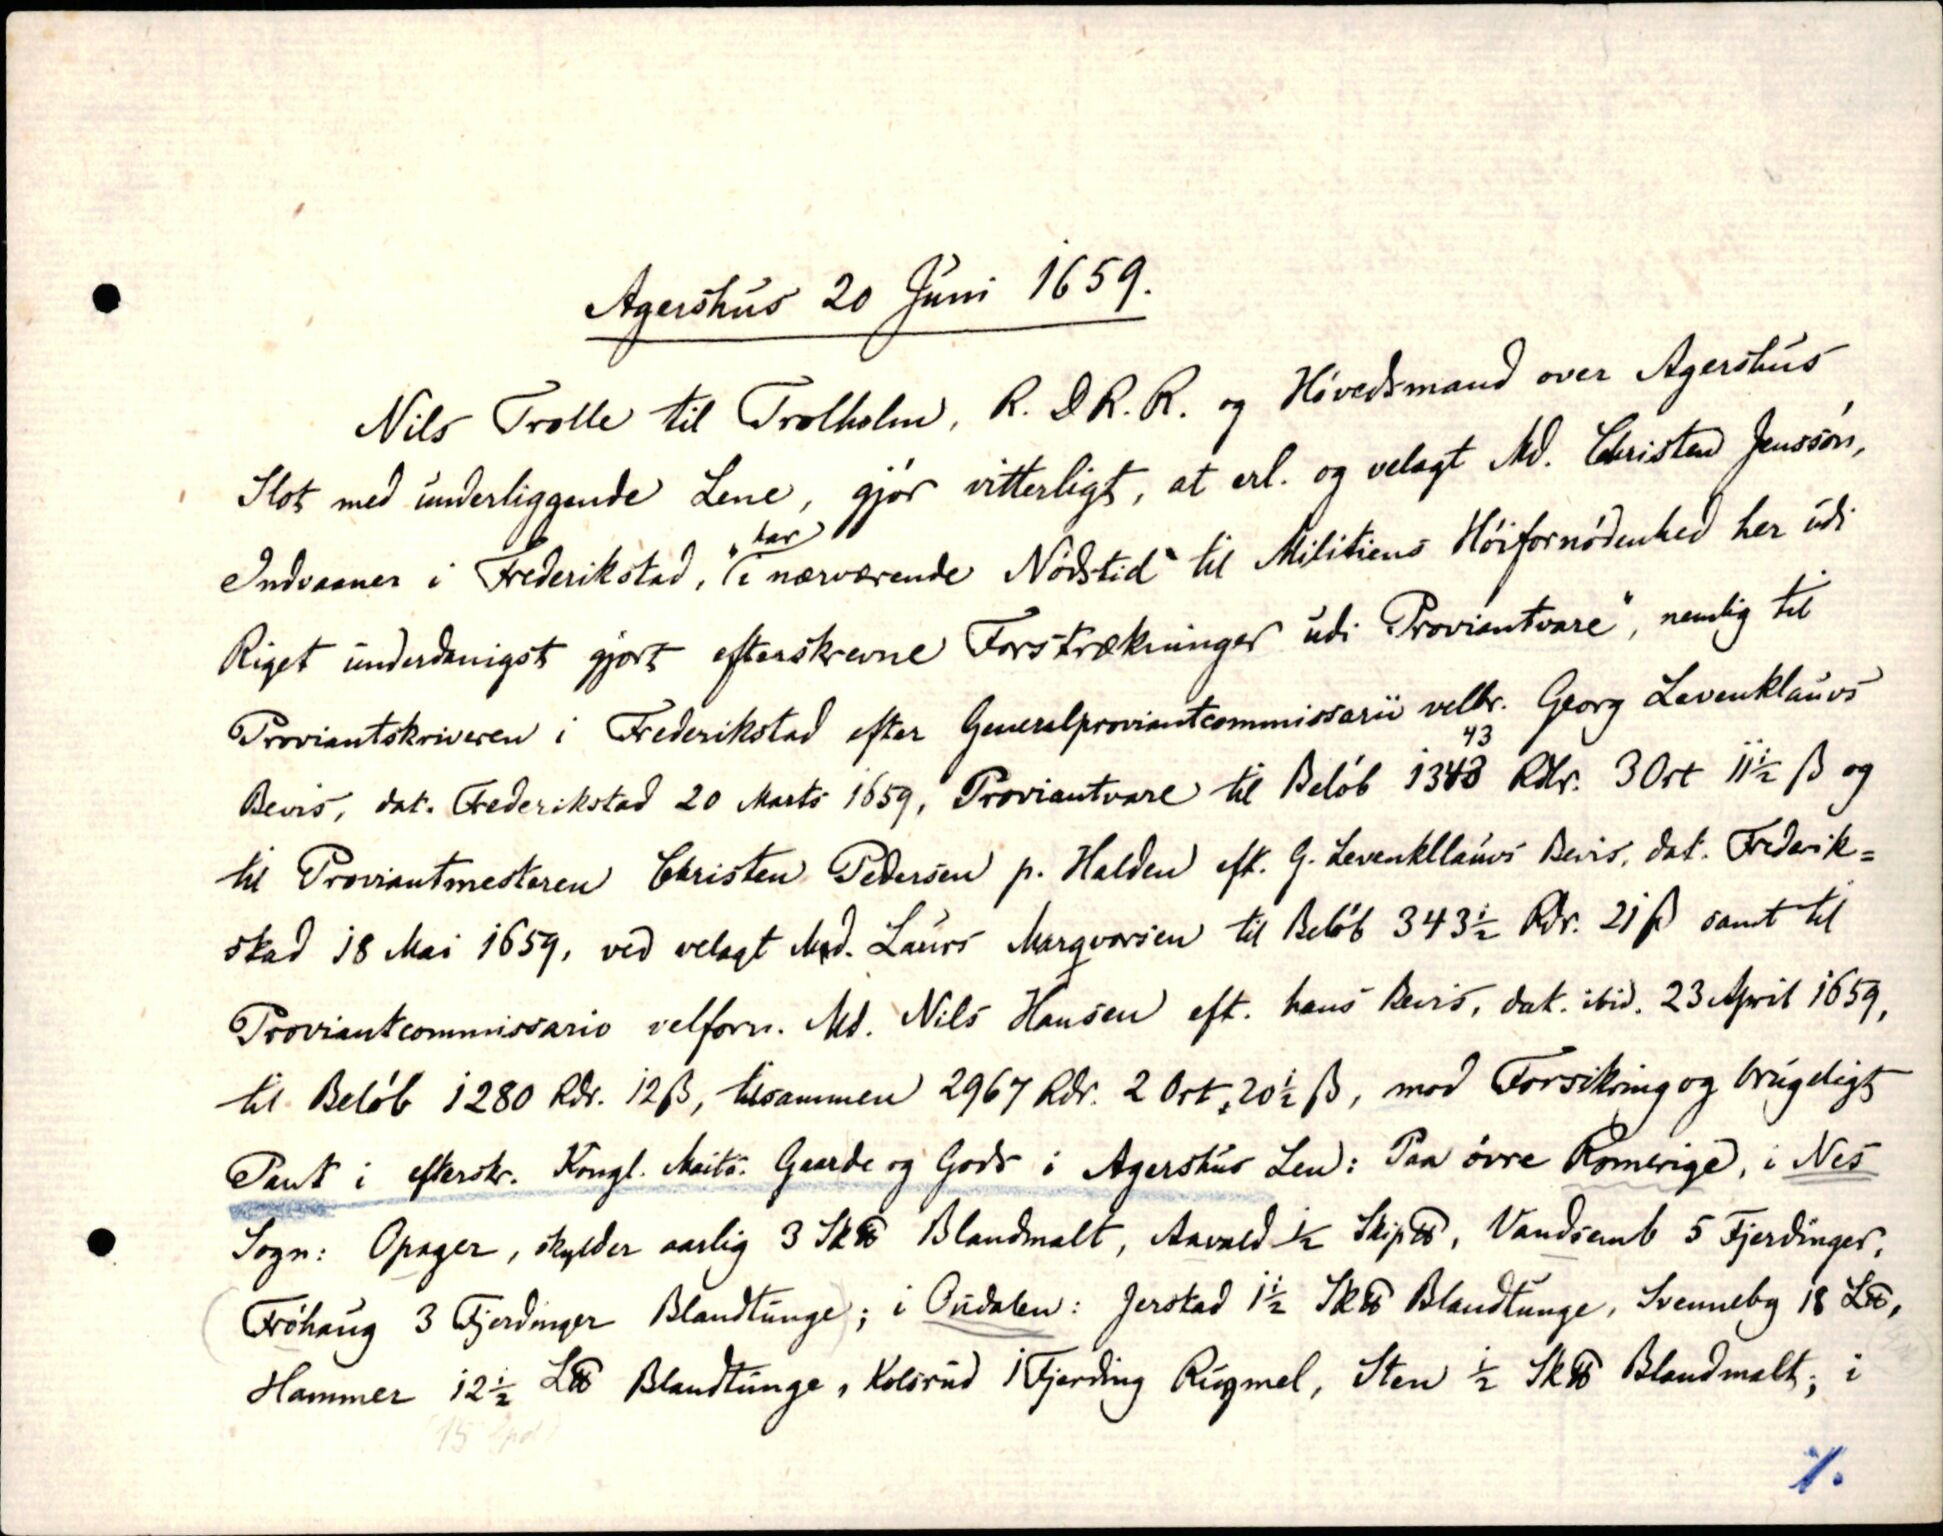 Agershus 20 Juni 1659.
Nils Trolle til Trolholm, R. D R. R. og Hövedsmand over Agershus
Slot med underliggende Lene, gjör vitterligt, at erl. og velagt Md. Christen Jenssön,
Indvaaner i Frederikstad, har "i nærværende Nödstid til Militiens Höifornödenhed her udi
Riget underdanigst gjort efterskrevne Forstrækninger udi Proviantvare", nemlig til
Proviantskriveren i Frederikstad efter Generalproviantcommissarii velbr. Georg Levenklauvs
Bevis, dat. Frederikstad 20 Marts 1659, Proviantvare til Belöb 1343 Rdlr. 3 Ort 11½ ß og
til Proviantmesteren Christen Pedersen p. Halden eft. G. Levenkllauvs Bevis, dat. Frederik=
stad 18 Mai 1659, ved velagt Md. Laurs Marqvorsen til Belöb 343½ Rdr. 21 ß samt til
Proviantcommissario velforn. Md. Nils Hansen eft. hans Bevis, dat. ibid. 23 April 1659,
til Belöb 1280 Rdr. 12 ß, tilsammen 2967 Rdr. 2 Ort, 20½ ß, mod Forsikring og brugeligt
Pant i efterskr. Kongl. Maits. Gaarde og Gods i Agershus Len: Paa övre Romerige, i Nes
Sogn: Opager, skylder aarlig 3 Sk℔ Blandmalt, Aavald ½ Skip℔, Vandsemb 5 Fjerdinger,
(Fröhaug 3 Fjerdinger Blandtunge); i Oudalen: Jerstad 1½ Sk℔ Blandtunge, Svenneby 18 L℔,
Hammer 12½ L℔ Blandtunge, Kolsrud 1 Fjerding Rugmel, Sten ½ Sk℔ Blandmalt; i
(15
/.